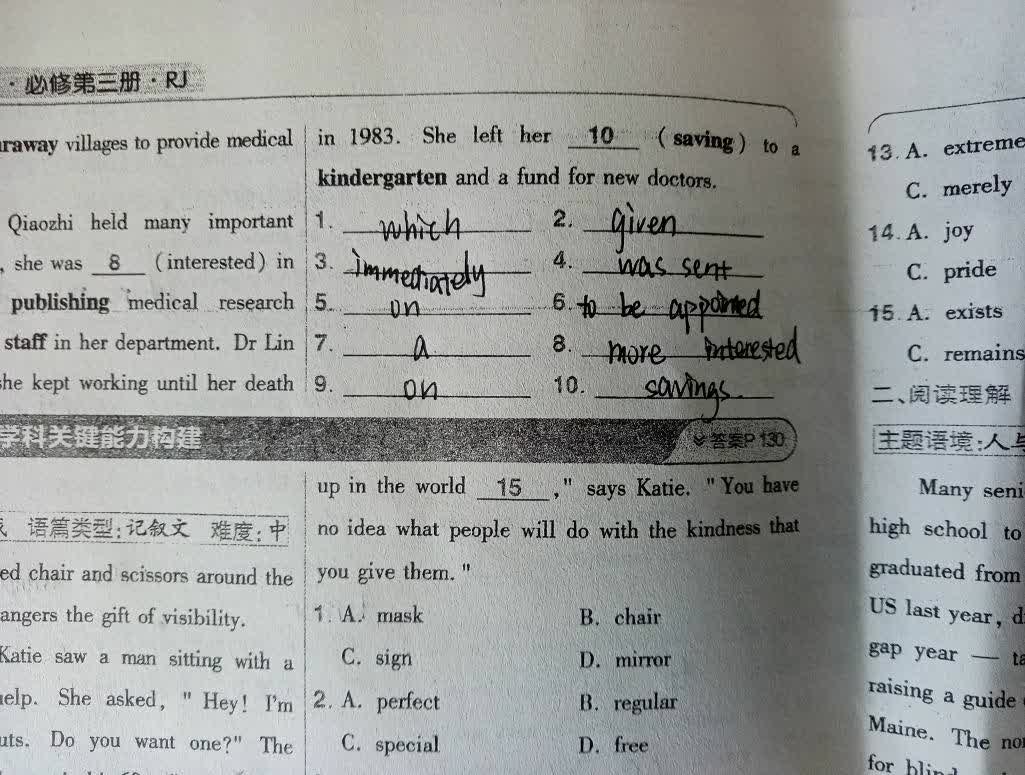 · 必修第三册 · RJ
raway villages to provide medical
Qiaozhi held many important
, she was 8 (interested) in
publishing medical research
staff in her department. Dr Lin
she kept working until her death
in 1983. She left her 10 (saving) to a
kindergarten and a fund for new doctors.
1. which 2. given
3. immediately 4. was sent
5. on 6. to be appointed
7. a 8. more interested
9. on 10. savings.
学科关键能力构建
答案P 130
语篇类型:记叙文 难度:中
ed chair and scissors around the
angers the gift of visibility.
Katie saw a man sitting with a
help. She asked, "Hey! I'm
uts. Do you want one?" The
up in the world 15 ," says Katie. "You have
no idea what people will do with the kindness that
you give them."
1. A. mask B. chair
C. sign D. mirror
2. A. perfect B. regular
C. special D. free
13. A. extreme
C. merely
14. A. joy
C. pride
15. A. exists
C. remains
二、阅读理解
主题语境:人与
Many seni
high school to
graduated from
US last year, d
gap year — ta
raising a guide
Maine. The no
for blind